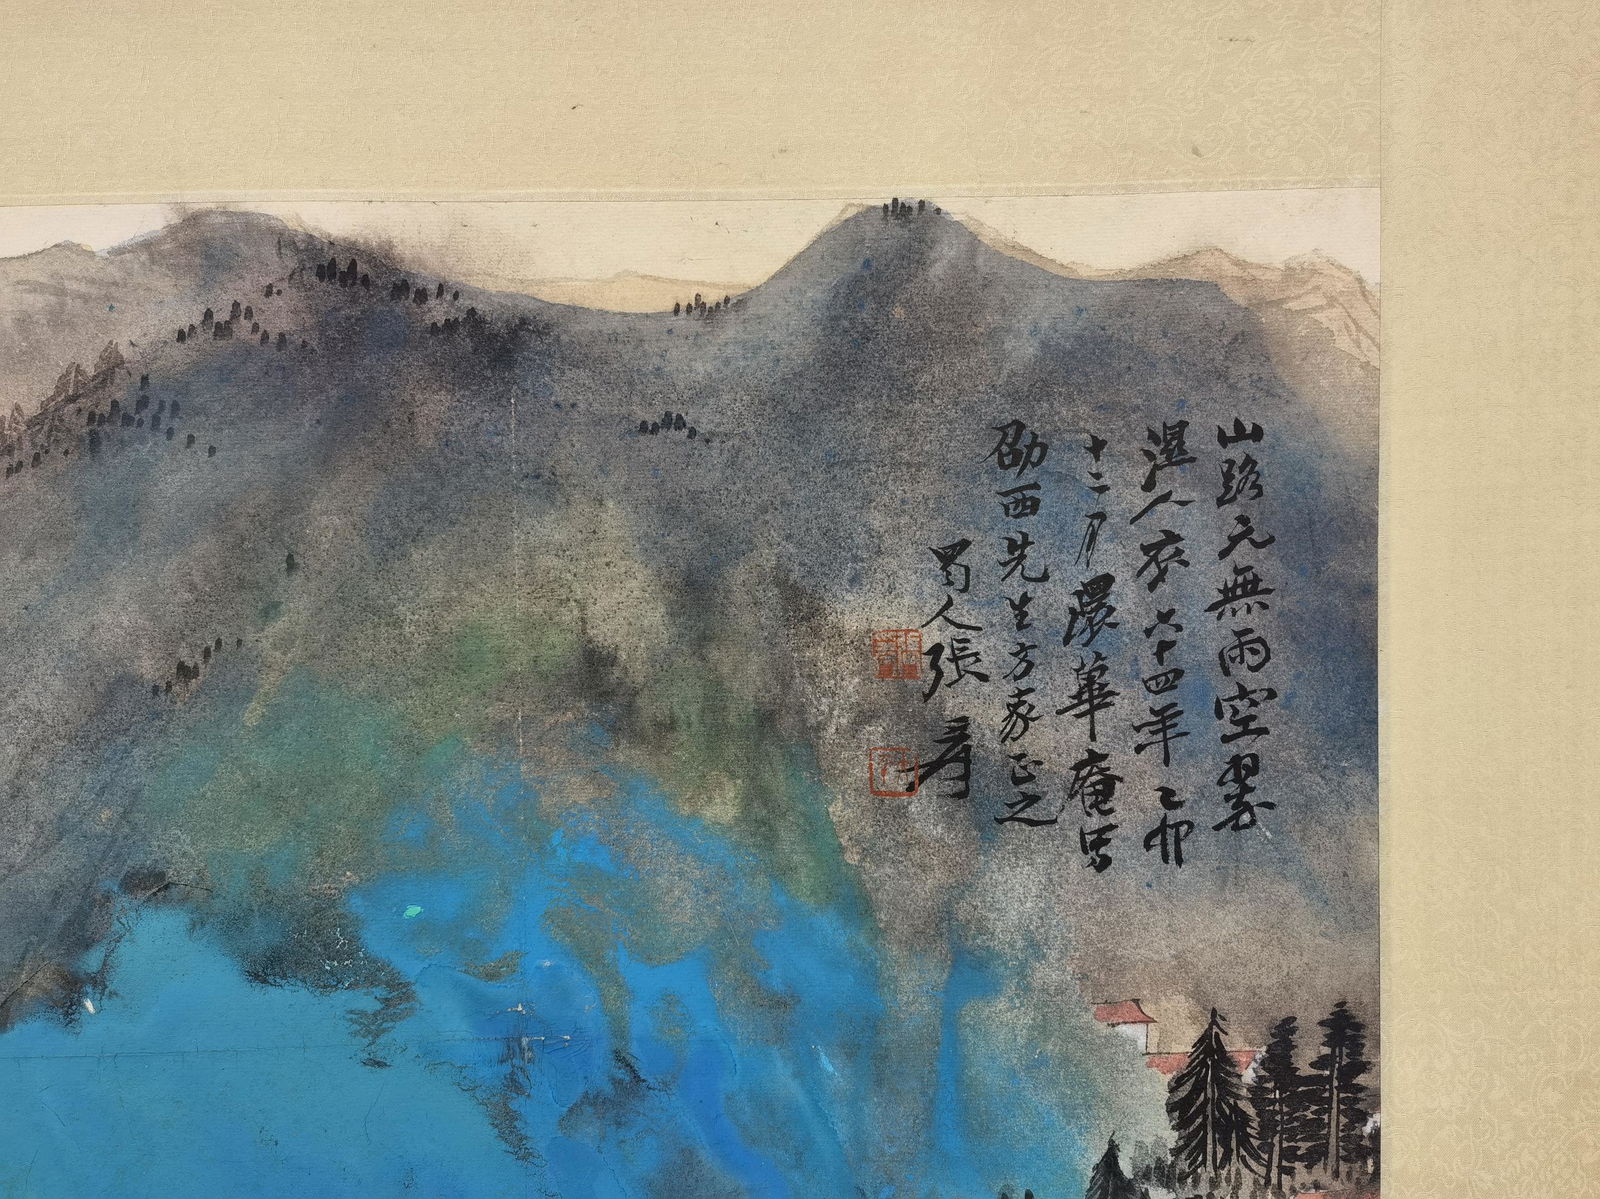 山路元無雨空翠
濕人衣六十四年乙卯
十二月環蓽庵寫
劭西先生方家正之
蜀人張爰